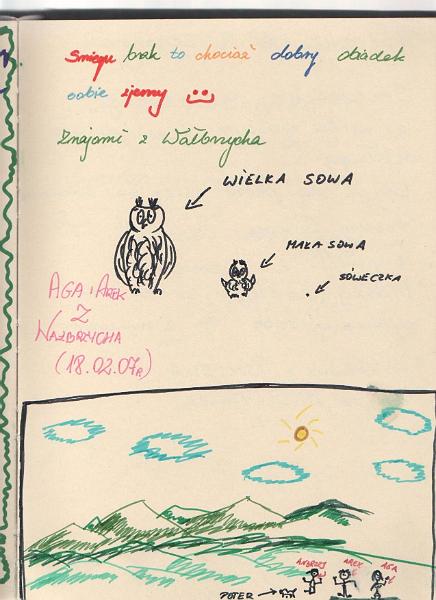 Śniegu brak to chociaż dobry obiadek
sobie zjemy
Znajomi z Wałbrzycha
WIELKA SOWA
MAŁA SOWA
SÓWECZKA
AGA i AREK
Z
WAŁBRZYCHA
(18.02.07r)
ANDRZEJ AREK AGA
POTER